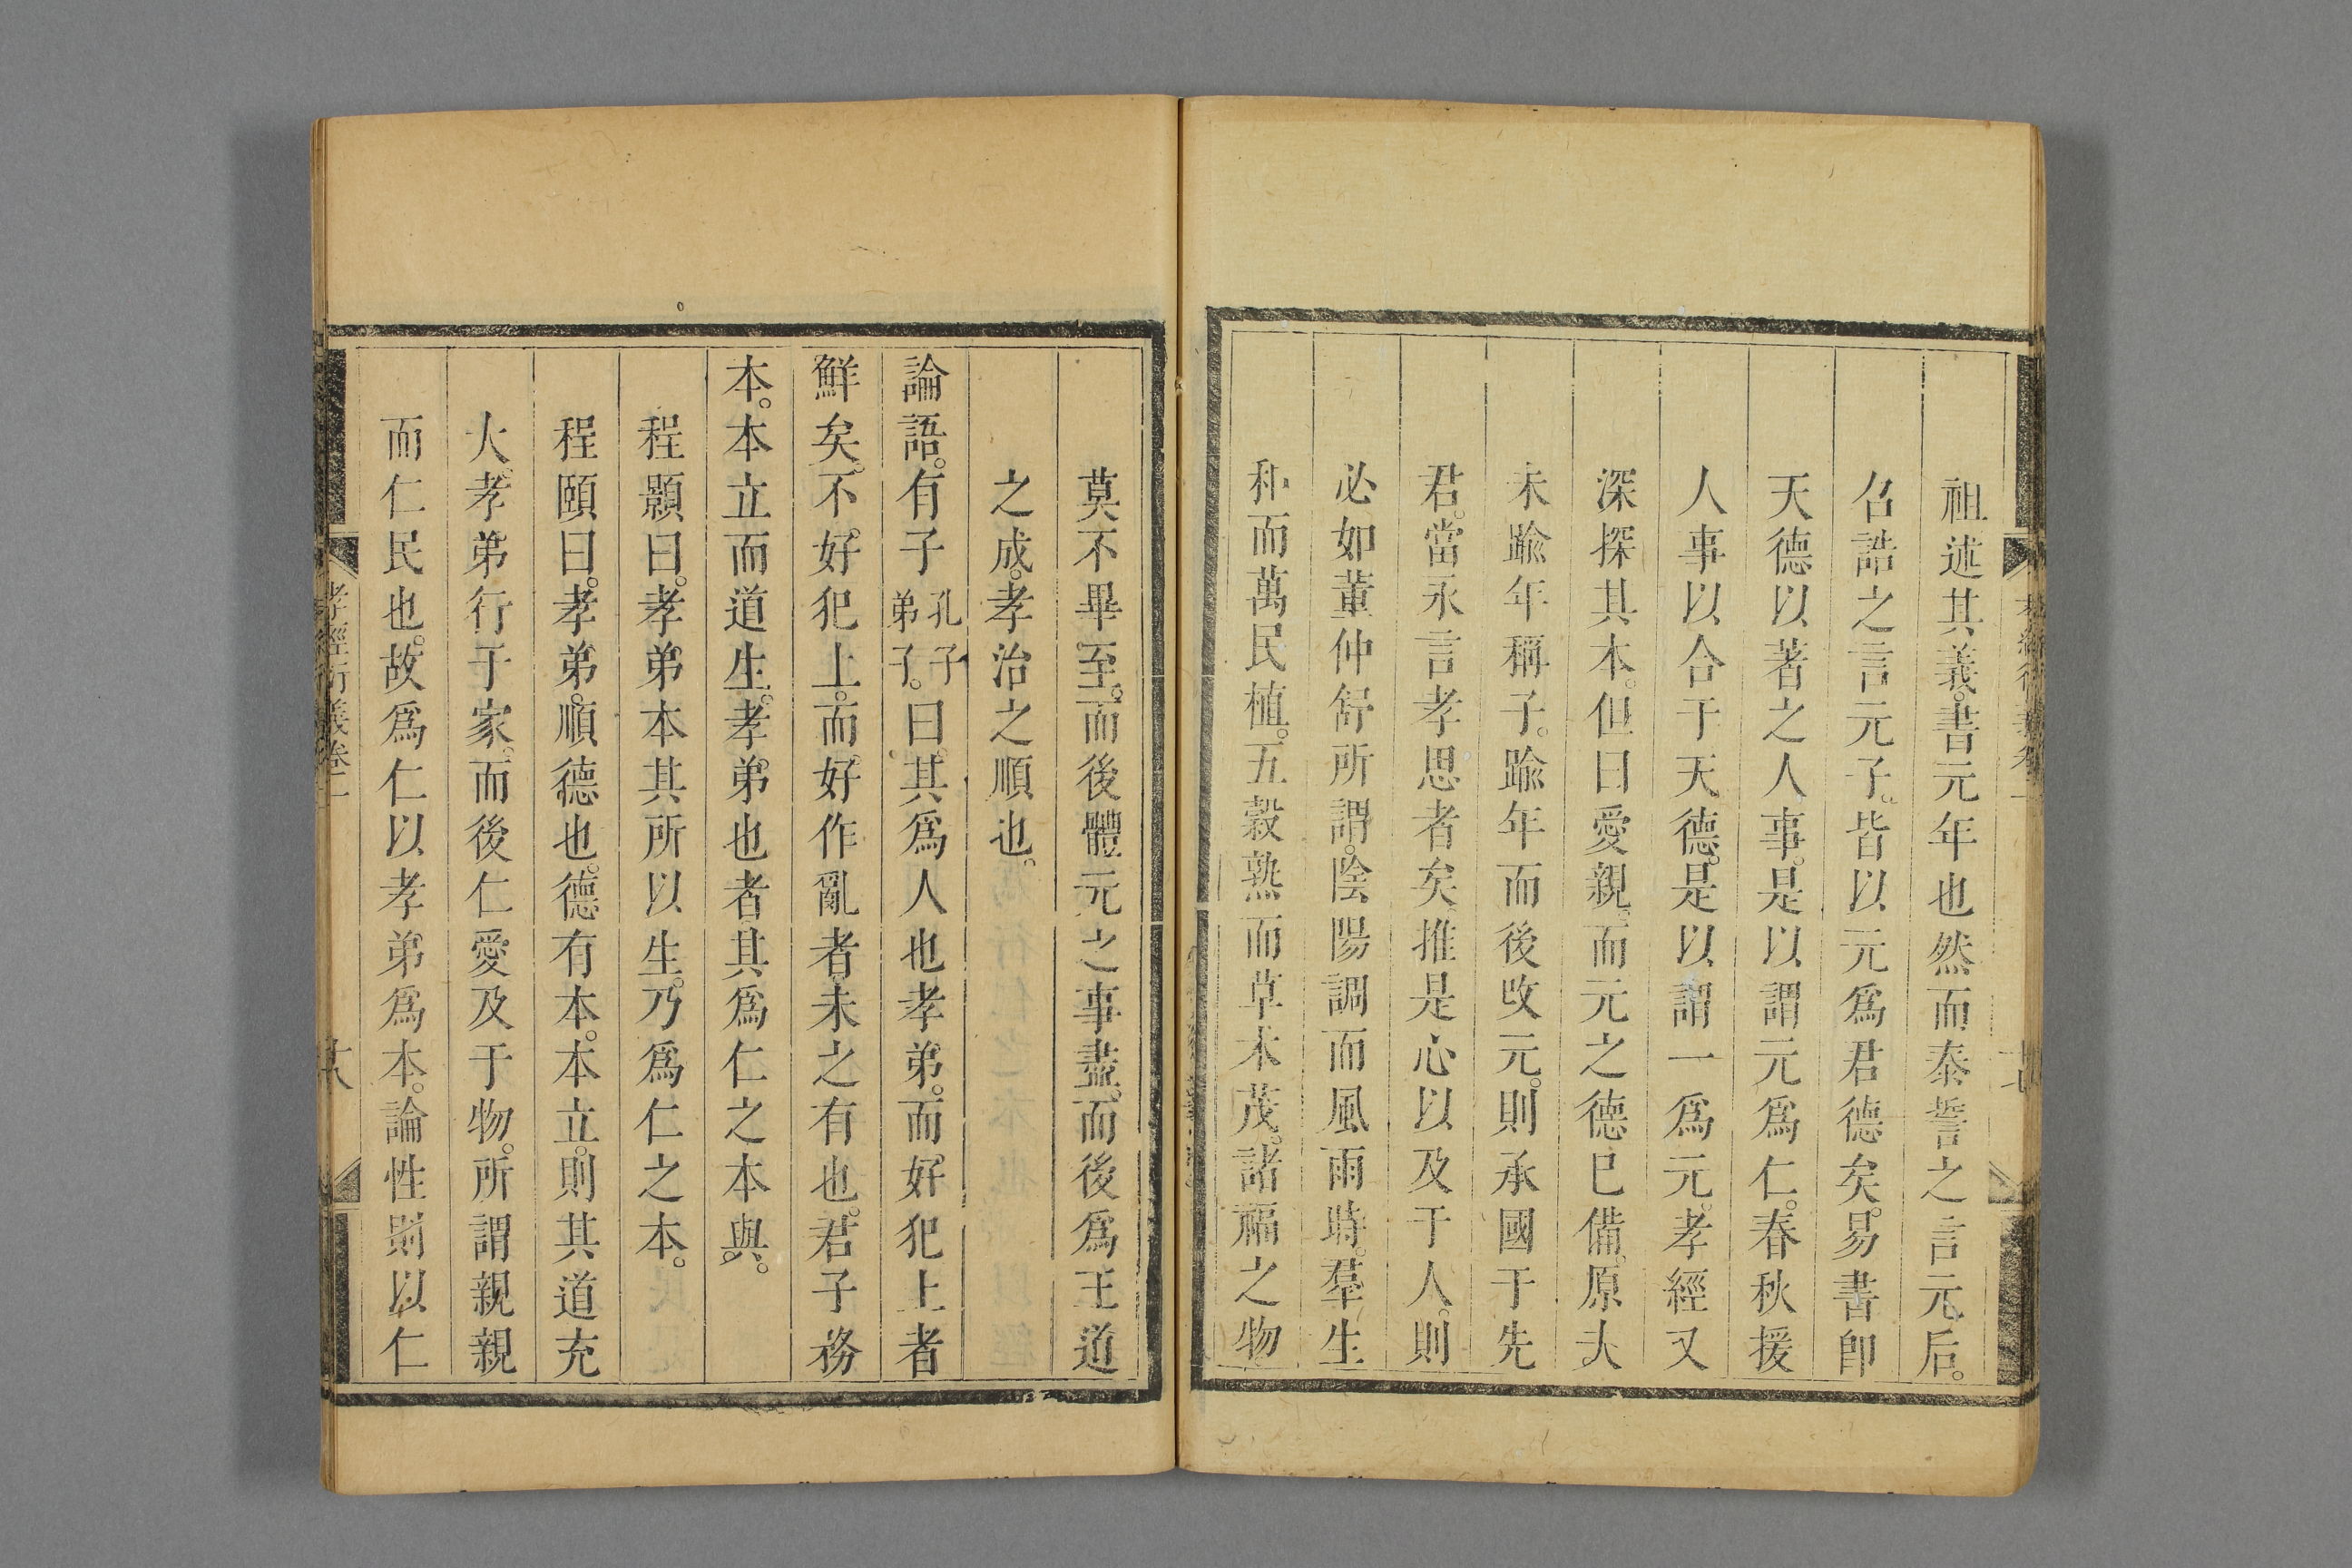 祖述其義。書元年也然而泰誓之言元后。
召誥之言元子。皆以元爲君德矣。易書卽
天德以著之人事。是以謂元爲仁。春秋援
人事以合于天德。是以謂一爲元。孝經又
深探其本。但曰愛親。而元之德已備。原夫
未踰年稱子。踰年而後改元。則承國于先
君。當永言孝思者矣。推是心以及于人。則
必如董仲舒所謂。陰陽調而風雨時。羣生
和而萬民植。五穀熟而草木茂。諸福之物
莫不畢至。而後體元之事盡。而後爲王道
之成。孝治之順也。
論語。有子孔子弟子。曰。其爲人也孝弟。而好犯上者
鮮矣。不好犯上。而好作亂者。未之有也。君子務
本。本立而道生。孝弟也者。其爲仁之本與。
程顥曰。孝弟本其所以生。乃爲仁之本。
程頤曰。孝弟。順德也。德有本。本立。則其道充
大。孝弟行于家。而後仁愛及于物。所謂親親
而仁民也。故爲仁以孝弟爲本。論性則以仁
孝經衍義卷二
十八